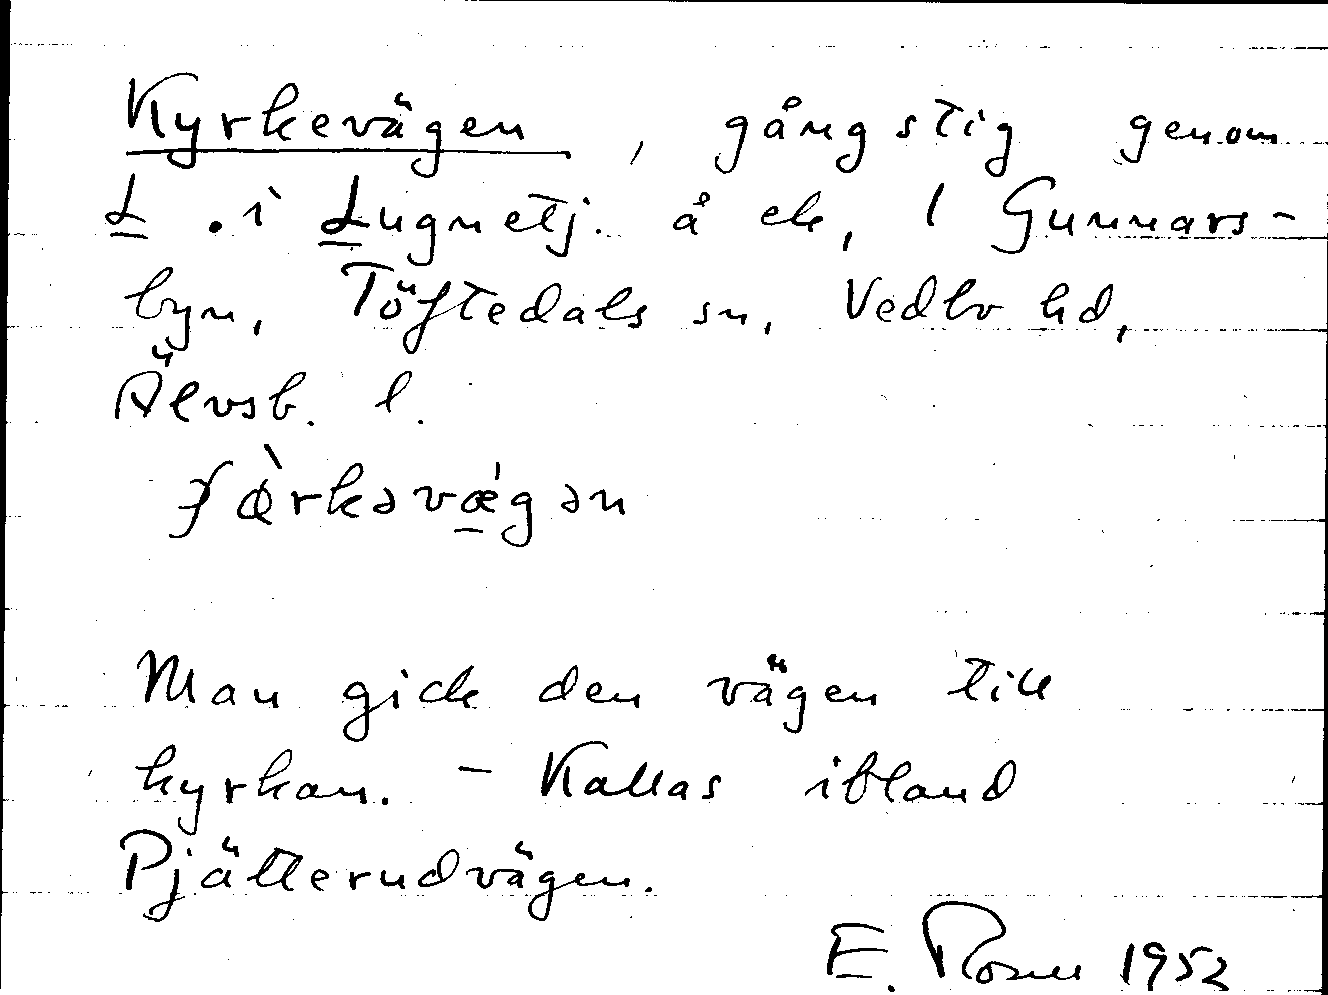 Kyrkevägen, gångstig genom
L . i Lugnetj. å ek, l Gunnars-
byn, Töftedals sn, Vedbo hd,
Älvsb. l.
Man gick den vägen till
kyrkan. - Kallas ibland
Pjätterudvägen.
E. Rosell 1952